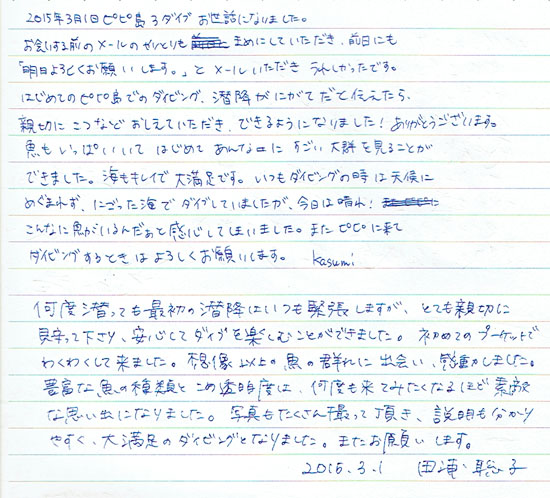 2015年3月1日ピピ島3ダイブ お世話になりました。
お会いする前のメールのやりとりも まめにしていただき、前日にも
「明日よろしくお願いします。」と メールいただき うれしかったです。
はじめてのピピ島でのダイビング、潜降がにがてだと伝えたら、
親切に こつなど おしえていただき、できるようになりました！ありがとうございます。
魚も いっぱいいて はじめて あんなに すごい 大群 を見ることが
できました。海もキレイで 大満足です。いつもダイビングの時は天候に
めぐまれず、にごった海で ダイブしていましたが、今日は晴れ！
こんなに魚がいるんだぁと感心してしまいました。また ピピに来て
ダイビングするときは よろしくお願いします。 kasumi
何度潜っても最初の潜降はいつも緊張しますが、とても親切に
見守って下さり、安心してダイブを楽しむことができました。初めてのプーケットで
わくわくして来ました。想像以上の魚の群れに出会い、感動しました。
豊富な魚の種類と この透明度は、何度も来てみたくなるほど素敵
な思い出になりました。写真もたくさん撮って頂き、説明も分かり
やすく、大満足のダイビングとなりました。またお願いします。
2015.3.1